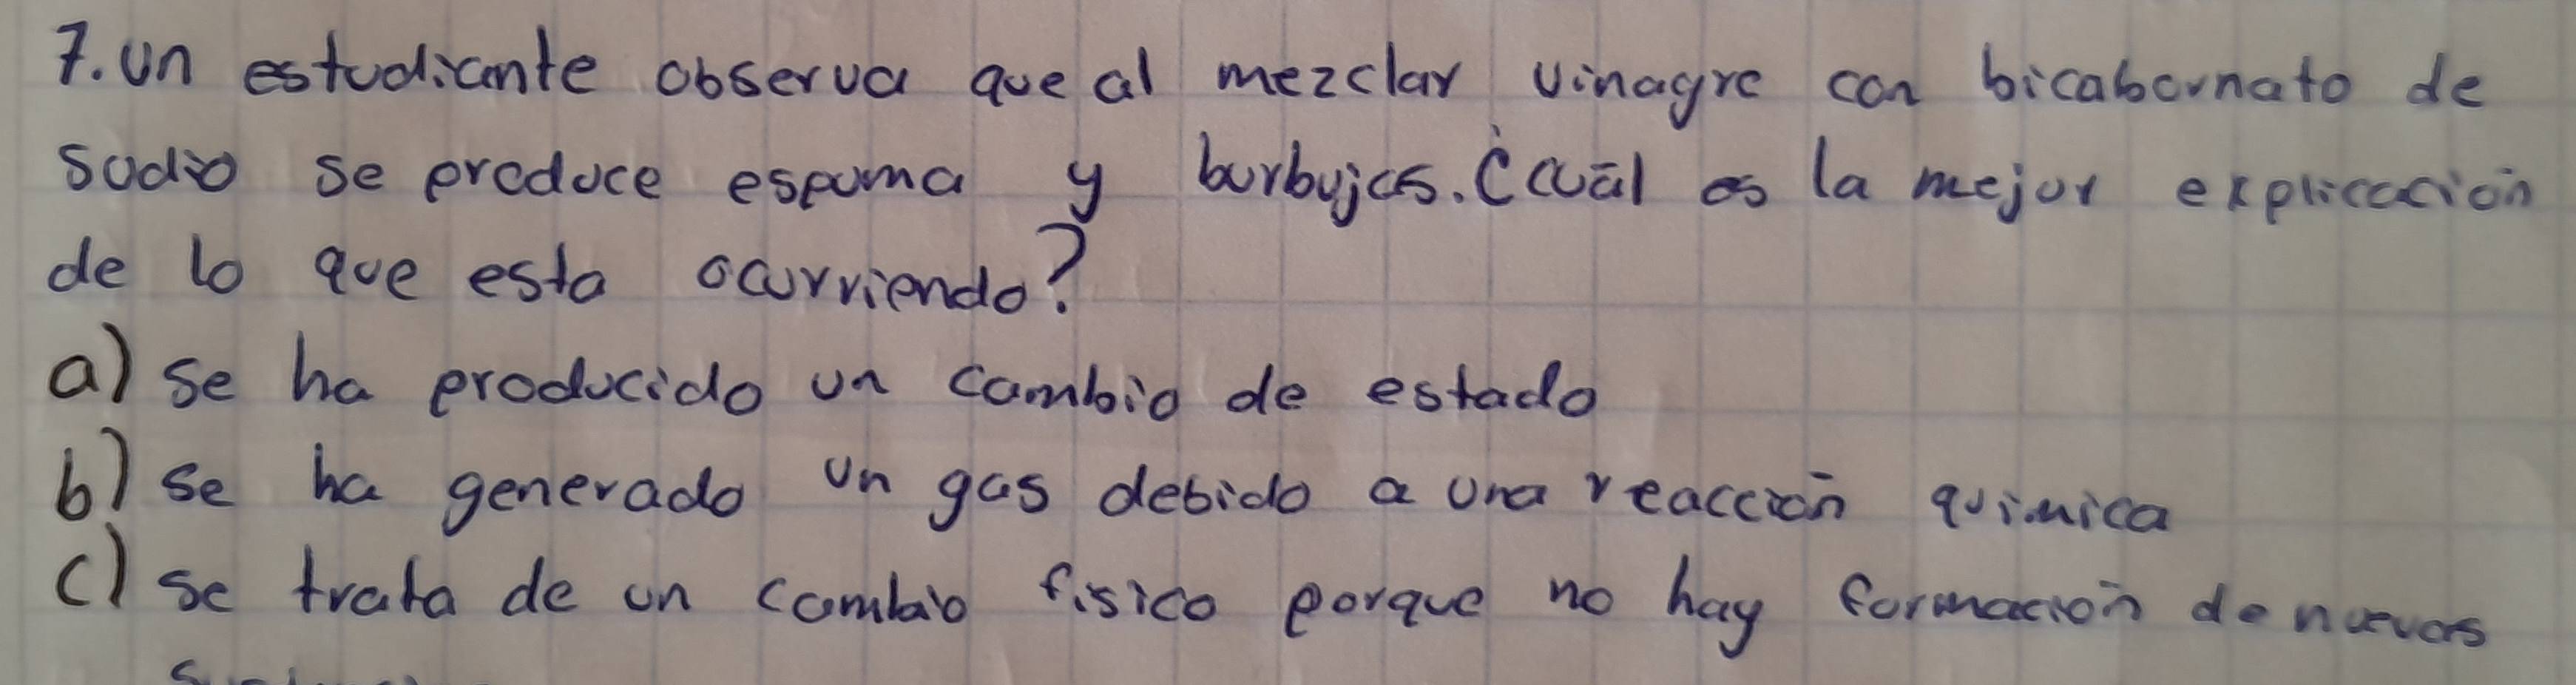 7. Un estudiante observa que al mezclar vinagre con bicabornato de
sodio se produce espuma y burbujas. ¿Cuál es la mejor explicación
de lo que esta ocurriendo?
a) se ha producido un cambio de estado
b) se ha generado un gas debido a una reacción quimica
c) se trata de un cambio fisico porque no hay formación de nuevas